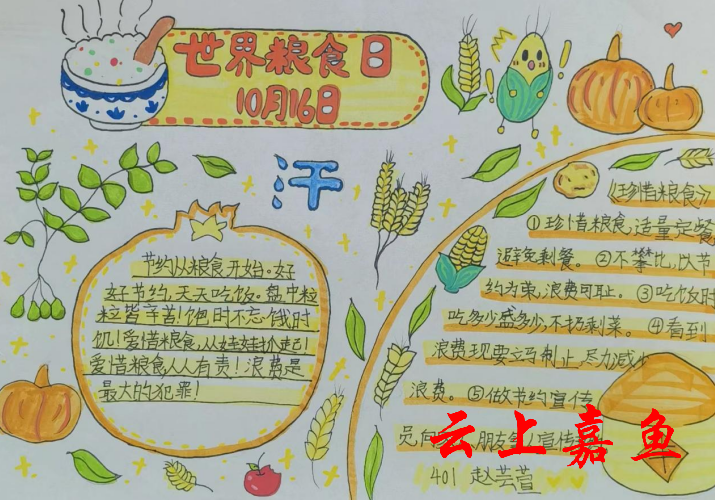 世界粮食日
10月16日
汗
节约从粮食开始。好
好节约,天天吃饭。盘中粒
粒皆辛苦!饱时不忘饿时
饥!爱惜粮食,从娃娃抓起!
爱惜粮食人人有责!浪费是
最大的犯罪!
《珍惜粮食》
①珍惜粮食,适量定餐
避免剩餐。②不攀比,以节
约为荣,浪费可耻。③吃饭时
吃多少盛多少,不扔剩菜。④看到
浪费现要立马制止,尽力减少
浪费。⑤做节约宣传
员向 朋友 宣传
401 赵芸萱
云上嘉鱼